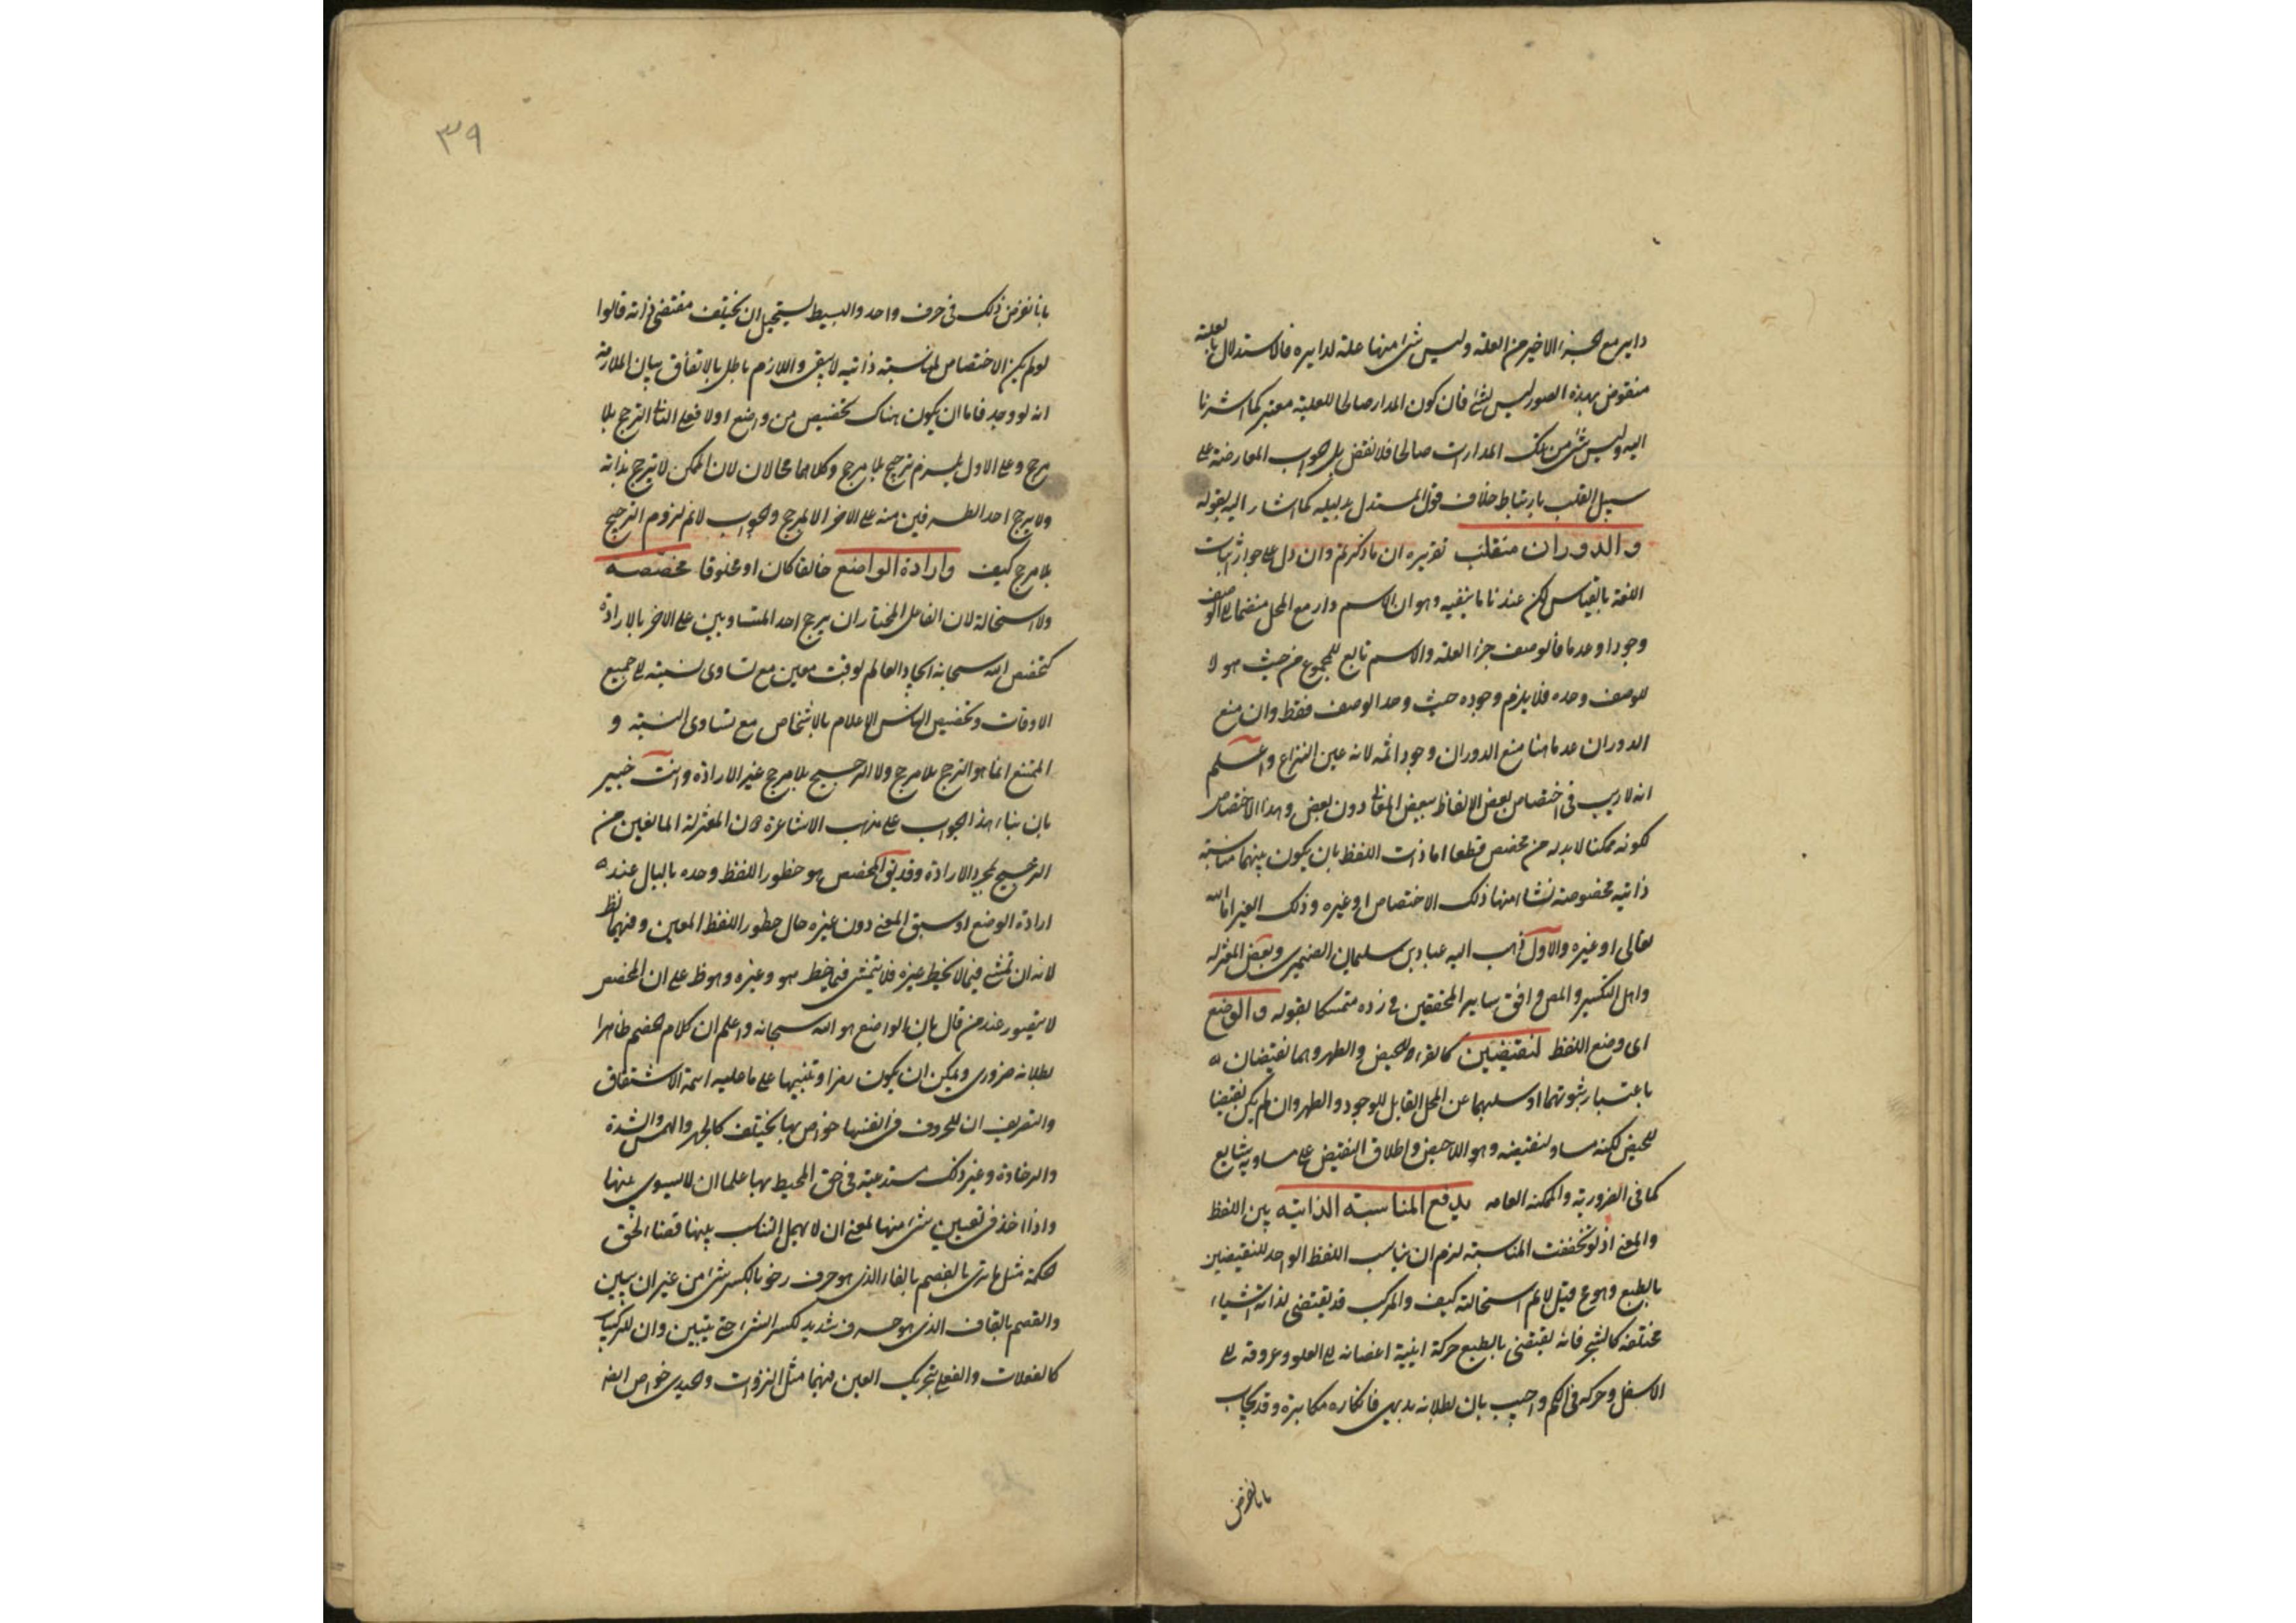 داير مع الجزء الاخير من العلة وليس شئ منها علة لدايره فالاستدلال بالعلية
منقوض بهذه الصور ليس بشئ فان كون المدار صالحا للعلية معتبر كما اشرنا
اليه وليس شئ من تلك المدارات صالحا فلا نقض بل الجواب المعارضة على
سبيل القلب بارتباط خلاف قول المستدل بدليله كما اشار اليه بقوله
والدوران منقلب تقريره ان ما ذكرتم وان دل على جواز اثبات
اللغة بالقياس لكن عندنا ما ينفيه وهو ان الاسم دار مع المحل منضما الى الوصف
وجودا وعدما فالوصف جزء العلة والاسم تابع للمجموع من حيث هو لا
للوصف وحده فلا يلزم وجوده حيث وجد الوصف فقط وان منع
الدوران عدما هنا منع الدوران وجودا ثمه لانه عين النزاع واعلم
انه لا ريب فى اختصاص بعض الالفاظ ببعض المعانى دون بعض وهذا الاختصاص
لكونه ممكنا لا بد له من مخصص قطعا اما ذات اللفظ بان يكون بينهما مناسبة
ذاتيه مخصوصة نشا منها ذلك الاختصاص او غيره وذلك الغير اما الله
تعالى او غيره والاول ذهب اليه عباد بن سليمان الصيمرى وبعض المعتزله
واهل التكسير والمص وافق ساير المحققين فى رده متمسكا بقوله والوضع
اى وضع اللفظ لنقيضين كالقرء للحيض والطهر وهما نقيضان
باعتبار ثبوتهما او سلبهما عن المحل القابل للوجود والطهر وان لم يكن نقيضا
للحيض لكنه مساو لنقيضه وهو اللاحيض واطلاق النقيض على مساويه شايع
كما فى الضروريه والممكنه العامه يدفع المناسبة الذاتيه بين اللفظ
والمعنى اذ لو تحققت المناسبة لزم ان يناسب اللفظ الواحد للنقيضين
بالطبع وهو مح قيل لا نم استحالته كيف والمركب قد يقتضى لذاته اشياء
مختلفة كالشجر فانه يقتضى بالطبع حركة اينية اغصانه الى العلو وعروقه الى
الاسفل وحركه فى الكم واجيب بان بطلانه بديهى فانكاره مكابرة وقد يجاب
بانا نفرض
٣٩
بانا نفرض ذلك فى حرف واحد والبسيط يستحيل ان يختلف مقتضى ذاته قالوا
لو لم يكن الاختصاص لمناسبة ذاتيه لا يبقى واللازم باطل بالاتفاق بيان الملازمة
انه لو وجد فاما ان يكون هناك تخصيص من واضع اولا فعلى الثانى الترجح بلا
مرجح وعلى الاول يلزم ترجيح بلا مرجح وكلاهما محالان لان الممكن لا يترجح بذاته
ولا يرجح احد الطرفين منه على الاخر الا لمرجح والجواب لا نم لزوم الترجيح
بلا مرجح كيف وارادة الواضع خالقا كان او مخلوقا مخصصه
ولا استحالة لان الفاعل المختار ان يرجح احد المتساويين على الاخر بالارادة
كتخصيص الله سبحانه ايجاد العالم لوقت معين مع تساوى نسبته الى جميع
الاوقات وتخصيص الناس الاعلام بالاشخاص مع تساوى النسبة و
الممتنع انما هو الترجح بلا مرجح ولا الترجيح بلا مرجح غير الارادة وانت خبير
بان بناء هذا الجواب على مذهب الاشاعرة لان المعتزلة المانعين من
الترجيح بمجرد الارادة وقد يق المخصص هو خطور اللفظ وحده بالبال عند
ارادة الوضع او سبق المعنى دون غيره حال خطور اللفظ المعين وفيهما نظر
لانه ان تمشى فيما لا يخطر غيره فلا يتمشى فيما يخطر هو وغيره وهو ظ على ان المخصص
لا يتصور عند من قال بان الواضع هو الله سبحانه واعلم ان كلام الخصم ظاهرا
بطلانه ضرورى ويمكن ان يكون رمزا وتنبيها على ما عليه ائمة الاشتقاق
والتصريف ان للحروف فى انفسها خواص بها يختلف كالجهر والهمس والشدة
والرخاوة وغير ذلك مستدعية فى حق المحيط بها علما ان لا يسوى بينها
واذا اخذ فى تعيين شئ منها لمعنى ان لا يهمل التناسب بينها قضاء لحق
الحكمة مثل ما ترى بالفصم بالفاء الذى هو حرف رخو بالكسر شئ من غير ان يبين
والقصم بالقاف الذى هو حرف شديد لكسر الشئ حتى يتبين وان للتركيبات
كالفعلان والفعلى بتحريك العين فيهما مثل النزوان والحيدى خواص ايضا